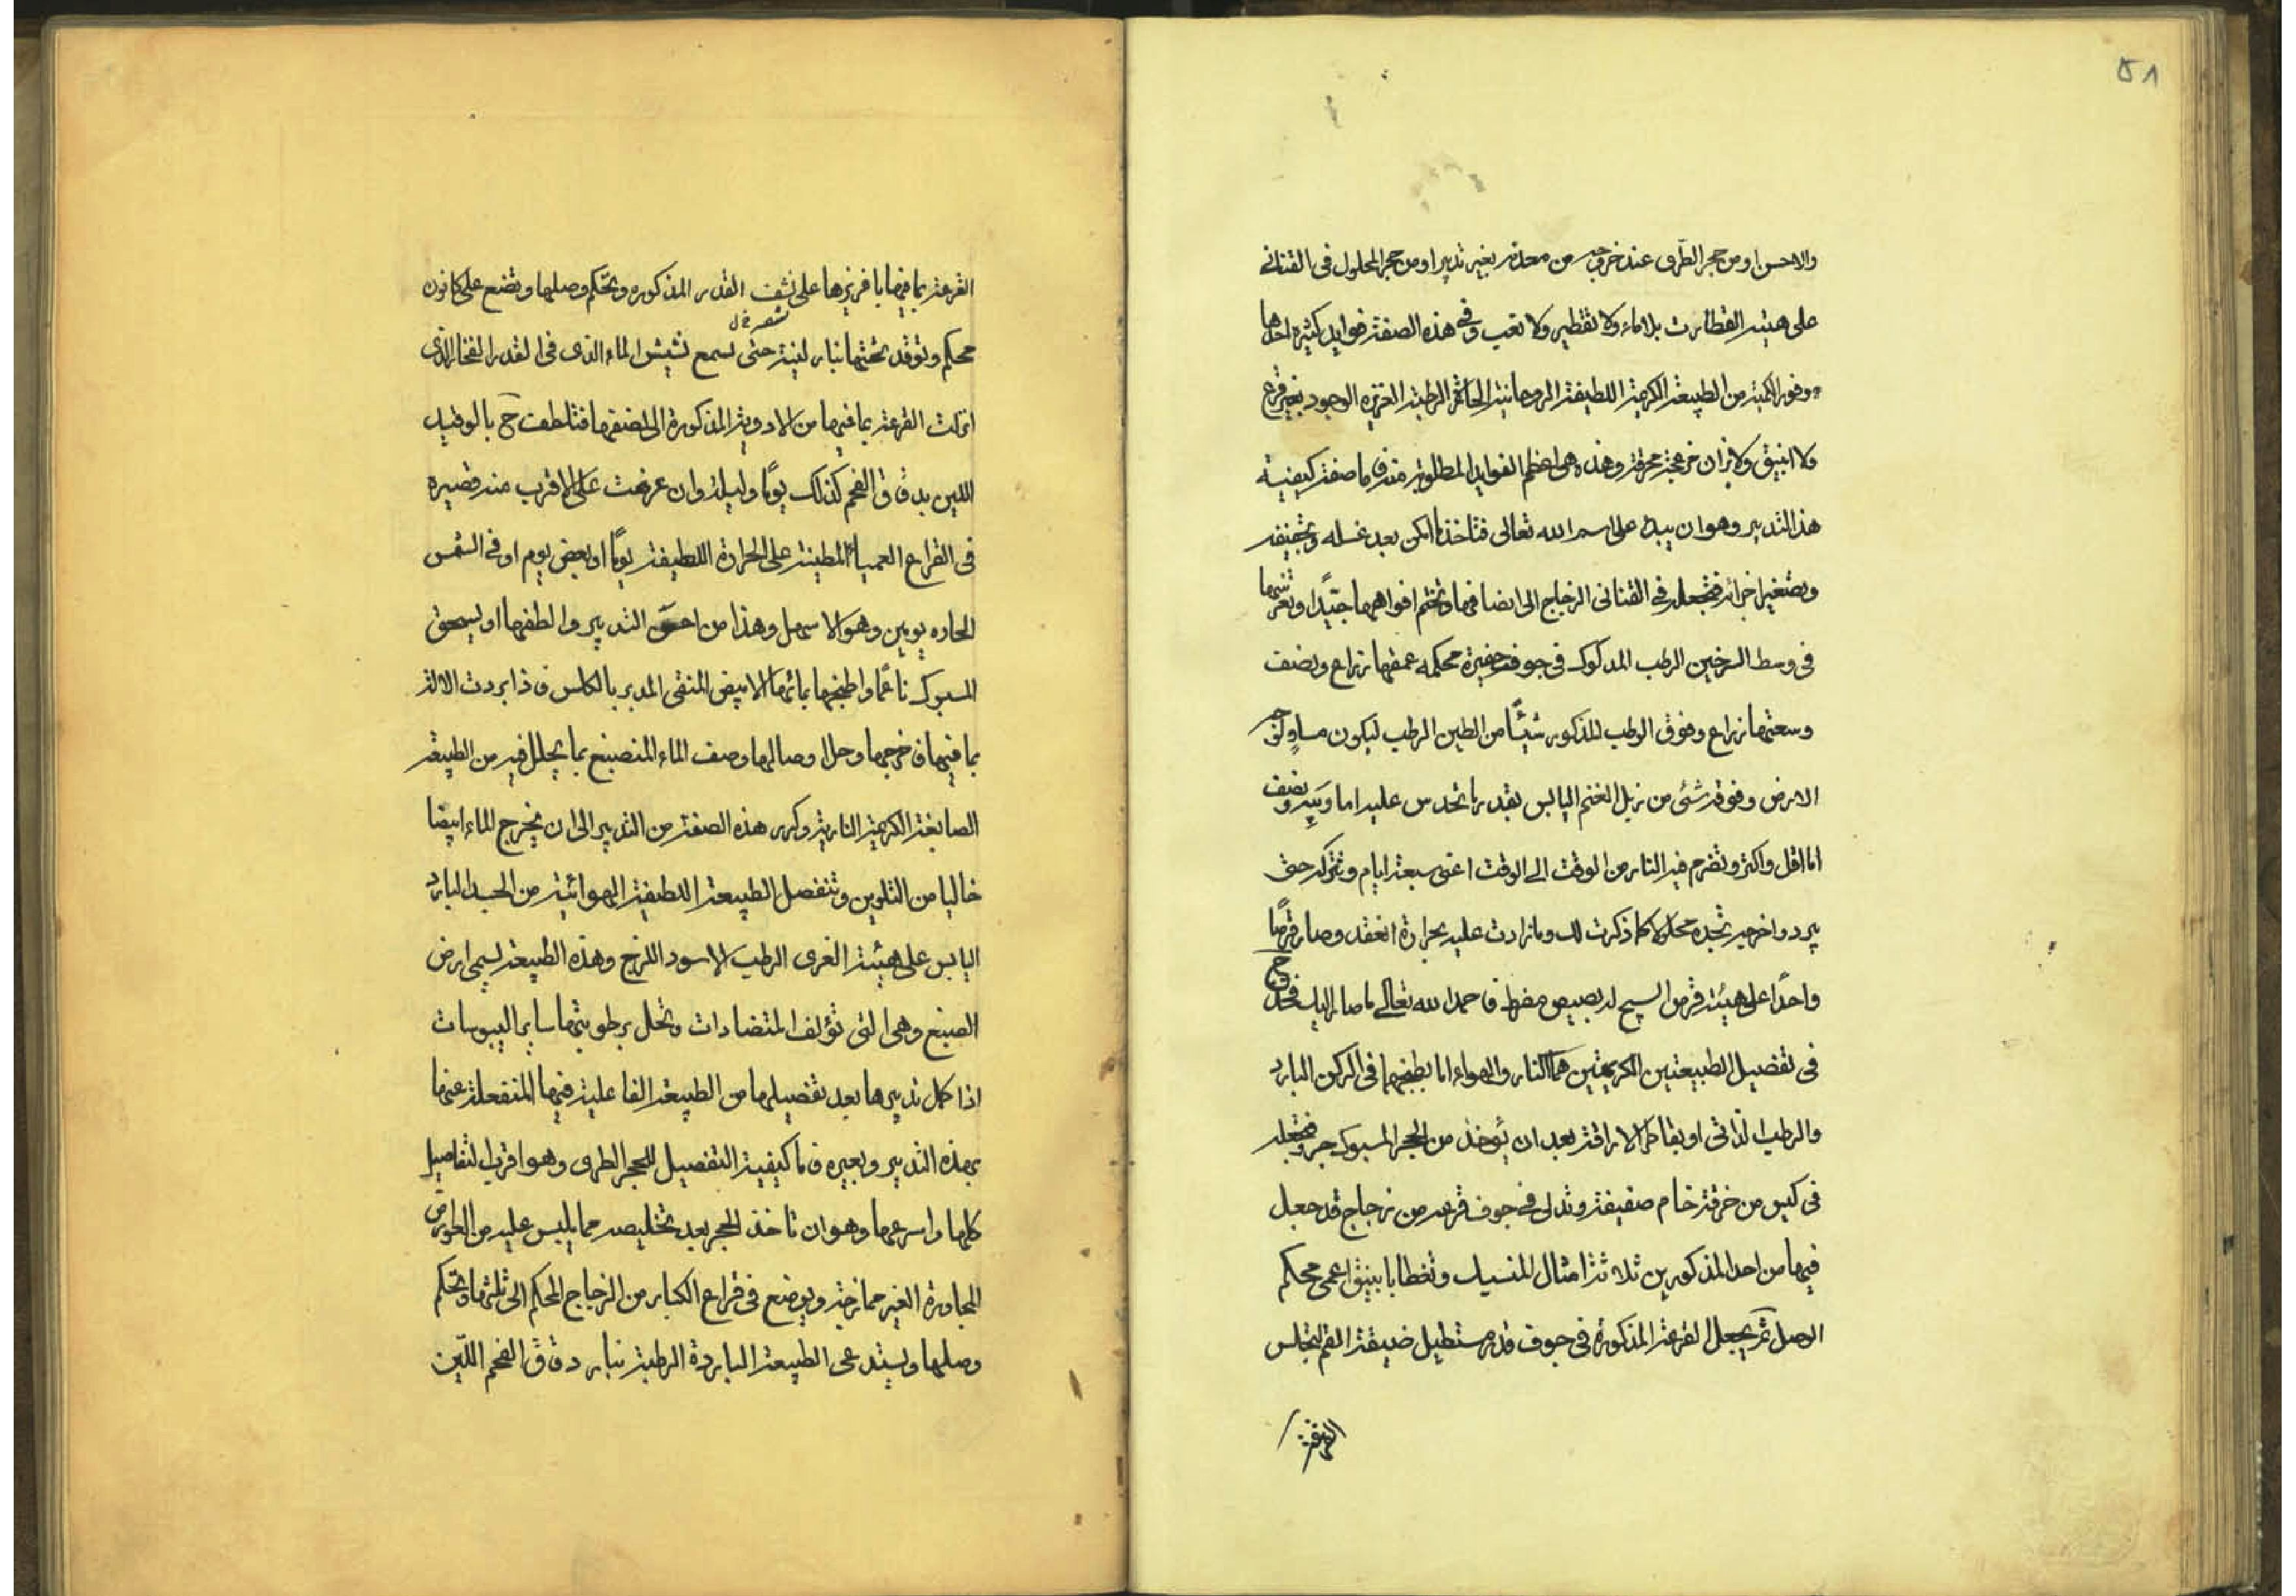 ٥٨
والاحسن او من حجر الطرى عند خروجه من معدنه بغير تدبير او من حجر المحلول فى القنانى
على هيئة القطارت بلا ماء ولا تقطير ولا تعب وفى هذه الصفة فوايد كثيرة احدها
وفور الكمية من الطبيعة الكريمة اللطيفة الروحانية الحارة الرطبة العزيزه الوجود بغير قرع
ولا انبيق ولا نيران مزعجة محرقة وهذه هى اعظم الفوايد المطلوبة منه فاما صفة كيفية
هذا التدبير وهو ان يبدا على اسم الله تعالى فتاخذ ما امكن بعد غسله وتجفيفه
وتصغير اجزائه فتجعله فى القنانى الزجاج الى انصافها وتختم افواهها جيدًا
فى وسط السرجين الرطب المدكوك فى جوف حفيرة محكمه عمقها ذراع ونصف
وسعتها ذراع وفوق الرطب المذكور شيئًا من الطين الرطب ليكون مساوٍ لوجه
الارض وفوقه شئ من زبل الغنم اليابس بقدر ما تحدس عليه اما ويبه ونصف
اما اقل واكثر وتضرم فيه النار من الوقت الى الوقت اعنى سبعة ايام ونتركه حتى
يبرد واخرجه تجده محلولا كما ذكرت لك وما زادت عليه بحرارة انعقد وصار قرصًا
واحدًا على هيئة قرص السبج له بصيص مفرط فاحمد الله تعالى ما صار اليك فخذ ح
فى تفصيل الطبيعتين الكريمتين هما النار والهواء اما بطبخهما فى الركن البارد
والرطب الذاتى او بقاطر الاراقة بعد ان يؤخذ من الحجر المسبوك جزو فتجعله
فى كيس من خرقة خام صفيقة وتدلى فى جوف قرعه من زجاج قد جعل
فيها من احد المذكورين ثلاثة امثال المنسيات وتغطا بانبيق اعمى محكم
الوصل ثم يجعل القرعة المذكورة فى جوف قدر مستطيل ضيقة الفم لتجلس
القرعة
القرعة بما فيها بافريزها على شفت القدر المذكوره ويحكم وصلها وتضع على كانون
محكم وتوقد تحتها نبار لينة حتى تسمع نشيش الماء الذى فى القدر الفخار الذى
انزلت القرعة بما فيها من الادوية المذكورة الى نصفها فتلطف ح بالوقيد
اللين بدقاق الفحم كذلك يومًا وليلة وان عرضت على الاقرب منه قصيرة
فى القراع العميا المطينة على الحرارة اللطيفة يومًا او بعض يوم او فى الشمس
الحاره يومين وهو الاسهل وهذا من احسن التدبير والطفها او يسحق
المسبوك ناعمًا واطبخها بمائها الابيض المنقى المدبر بالكاس فاذا بردت الالة
بما فيها فاخرجها وحل اوصالها وصف الماء المنصبغ بما يحلل فيه من الطبيعة
الصابغة الكريمة النارية وكرر هذه الصفة من التدبير الى ان يخرج الماء ابيضا
خاليا من التلوين وتنفصل الطبيعة اللطيفة الهوائية من الجسد البارد
اليابس على هيئة الغرى الرطب الاسود اللزج وهذه الطبيعة تسمى ارض
الصبغ وهى التى تؤلف المتضادات وتحلل برطوبتها ساير اليبوسات
اذا كمل تدبيرها بعد تفصيلها من الطبيعة الفاعلية فيها المنفعلة عنها
بهذه التدبير وبغيره فاما كيفية التفصيل للحجر الطرى وهو اقرب التفاصيل
كلها واسرعها وهو ان تاخذ الحجر بعد تخليصه مما يلبس عليه من العوارض
المجاورة الغير ممازجة ويوضع فى قراع الكبار من الزجاج المحكم الى ثلثها ويحكم
وصلها ويستدعى الطبيعة الباردة الرطبة نبار دقاق الفحم اللين